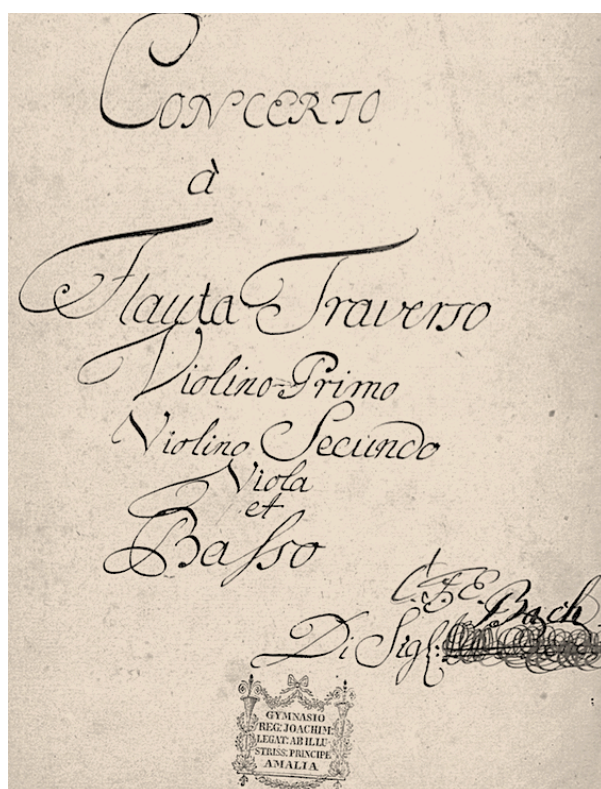 CONCERTO
à
Flauta Traverso
Violino Primo
Violino Secundo
Viola
et
Basso
C. P. E. Bach
Di Sigl:
GYMNASIO
REG: JOACHIM:
LEGAT: AB ILLU-
STRISS: PRINCIPE
AMALIA